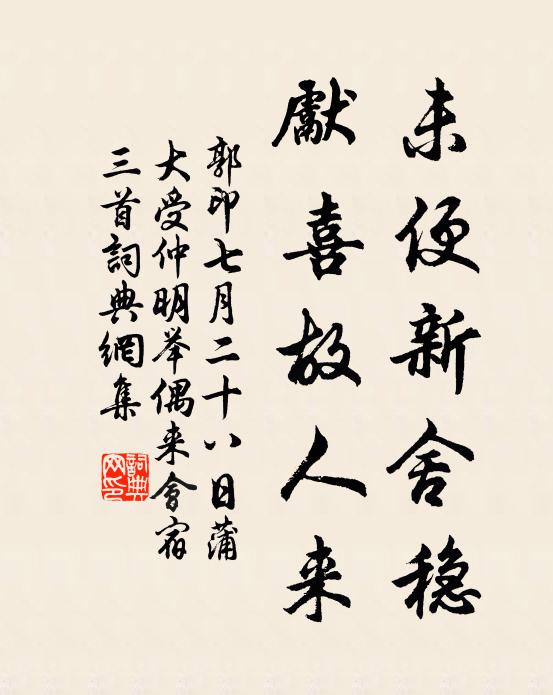 未便新舍稳
獻喜故人来
郭印七月二十八日蒲
大受仲明举偶来會宿
三首詞典網集
詞典
网印